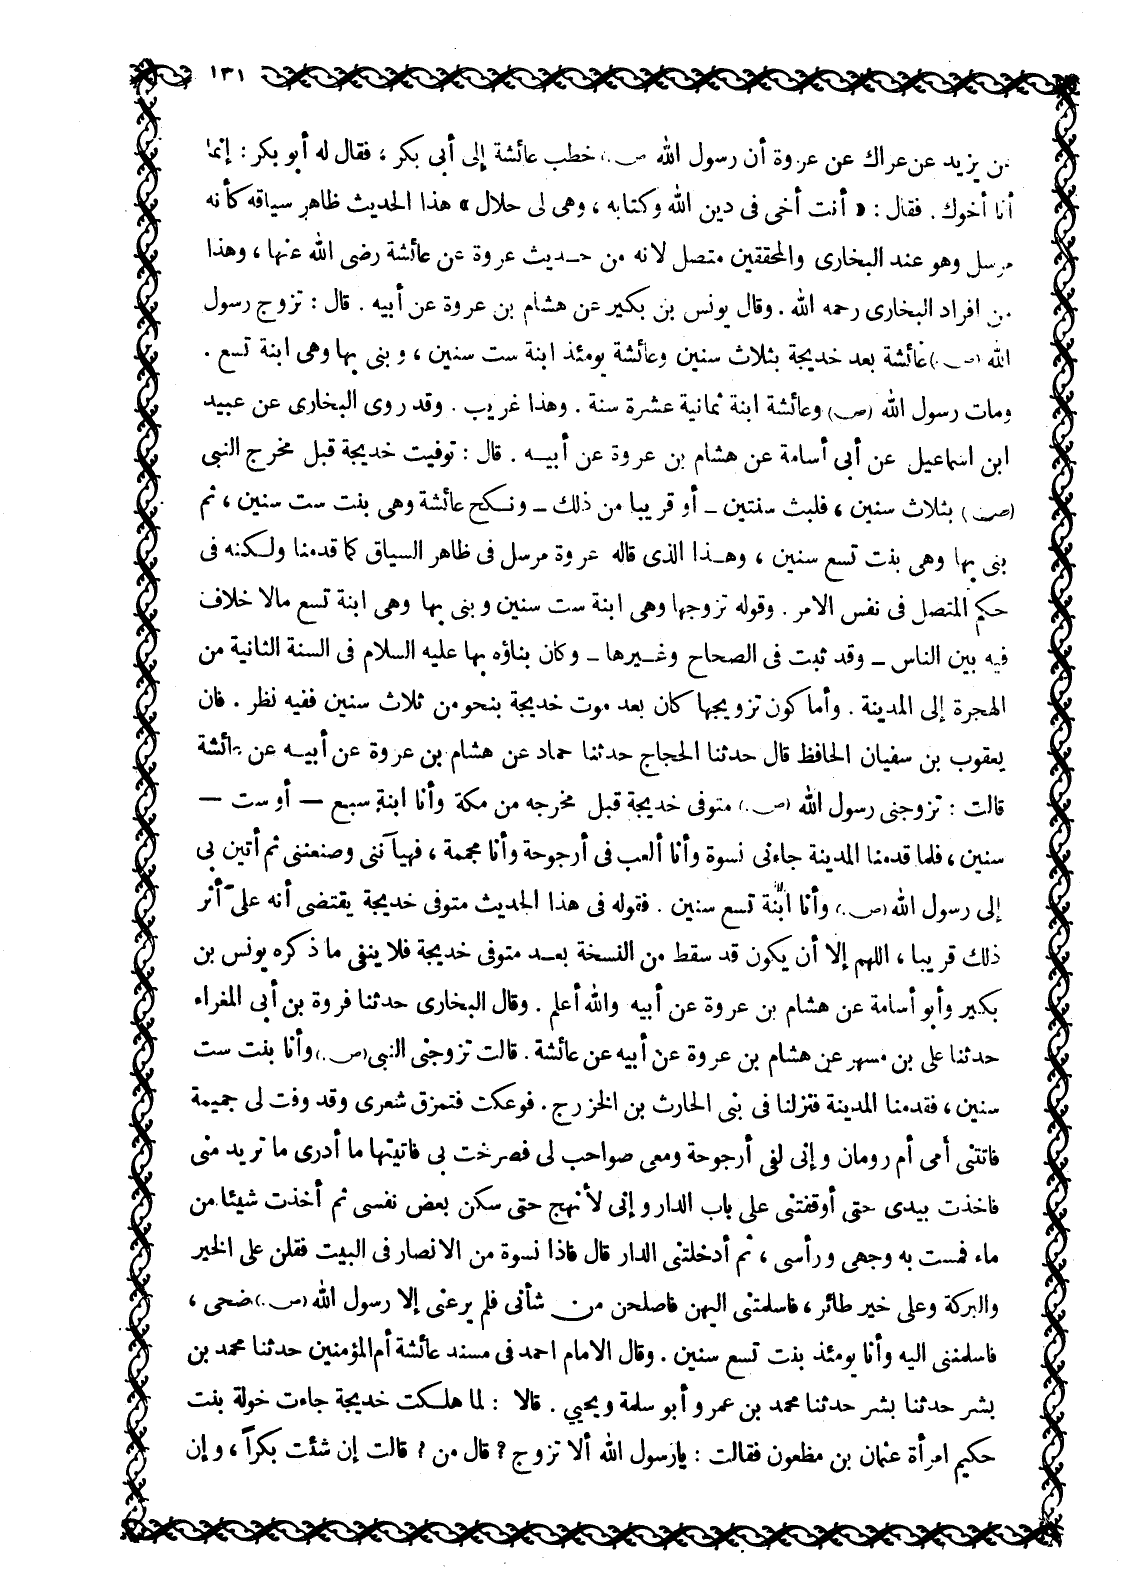 ١٣١
عن يزيد عن عراك عن عروة أن رسول الله (ص.) خطب عائشة إلى أبى بكر ، فقال له أبو بكر : إنما
أنا أخوك . فقال : « أنت أخى فى دين الله وكتابه ، وهى لى حلال » هذا الحديث ظاهر سياقه كأنه
مرسل وهو عند البخارى والمحققين متصل لانه من حديث عروة عن عائشة رضى الله عنها ، وهذا
من افراد البخارى رحمه الله . وقال يونس بن بكير عن هشام بن عروة عن أبيه . قال : تزوج رسول
الله (ص.) عائشة بعد خديجة بثلاث سنين وعائشة يومئذ ابنة ست سنين ، وبنى بها وهى ابنة تسع .
ومات رسول الله (ص) وعائشة ابنة ثمانية عشرة سنة . وهذا غريب . وقد روى البخارى عن عبيد
ابن اسماعيل عن أبى أسامة عن هشام بن عروة عن أبيه . قال : توفيت خديجة قبل مخرج النبى
(ص) بثلاث سنين ، فلبث سنتين ـ أو قريبا من ذلك ـ ونكح عائشة وهى بنت ست سنين ، ثم
بنى بها وهى بنت تسع سنين ، وهذا الذى قاله عروة مرسل فى ظاهر السياق كما قدمنا ولكنه فى
حكم المتصل فى نفس الامر . وقوله تزوجها وهى ابنة ست سنين وبنى بها وهى ابنة تسع مالا خلاف
فيه بين الناس ـ وقد ثبت فى الصحاح وغيرها ـ وكان بناؤه بها عليه السلام فى السنة الثانية من
الهجرة إلى المدينة . وأما كون تزويجها كان بعد موت خديجة بنحو من ثلاث سنين ففيه نظر . فان
يعقوب بن سفيان الحافظ قال حدثنا الحجاج حدثنا حماد عن هشام بن عروة عن أبيه عن عائشة
قالت : تزوجنى رسول الله (ص.) متوفى خديجة قبل مخرجه من مكة وأنا ابنة سبع — أو ست —
سنين ، فلما قدمنا المدينة جاءنى نسوة وأنا ألعب فى أرجوحة وأنا مجممة ، فهيأننى وصنعننى ثم أتين بى
إلى رسول الله (ص.) وأنا ابنة تسع سنين . فقوله فى هذا الحديث متوفى خديجة يقتضى أنه على أثر
ذلك قريبا ، اللهم إلا أن يكون قد سقط من النسخة بعد متوفى خديجة فلا ينفى ما ذكره يونس بن
بكير وأبو أسامة عن هشام بن عروة عن أبيه والله أعلم . وقال البخارى حدثنا فروة بن أبى المغراء
حدثنا على بن مسهر عن هشام بن عروة عن أبيه عن عائشة . قالت تزوجنى النبى (ص.) وأنا بنت ست
سنين ، فقدمنا المدينة فنزلنا فى بنى الحارث بن الخزرج . فوعكت فتمزق شعرى وقد وفت لى جميمة
فاتتنى أمى أم رومان وإنى لفى أرجوحة ومعى صواحب لى فصرخت بى فاتيتها ما أدرى ما تريد منى
فاخذت بيدى حتى أوقفتنى على باب الدار وإنى لأنهج حتى سكن بعض نفسى ثم أخذت شيئا من
ماء فمست به وجهى ورأسى ، ثم أدخلتنى الدار قال فاذا نسوة من الانصار فى البيت فقلن على الخير
والبركة وعلى خير طائر ، فاسلمتنى اليهن فاصلحن من شأنى فلم يرعنى إلا رسول الله (ص.) ضحى ،
فاسلمتنى اليه وأنا يومئذ بنت تسع سنين . وقال الامام احمد فى مسند عائشة أم المؤمنين حدثنا محمد بن
بشر حدثنا بشر حدثنا محمد بن عمرو أبو سلمة ويحيى . قالا : لما هلكت خديجة جاءت خولة بنت
حكيم امرأة عثمان بن مظعون فقالت : يارسول الله ألا تزوج ؟ قال من ؟ قالت إن شئت بكراً ، وإن